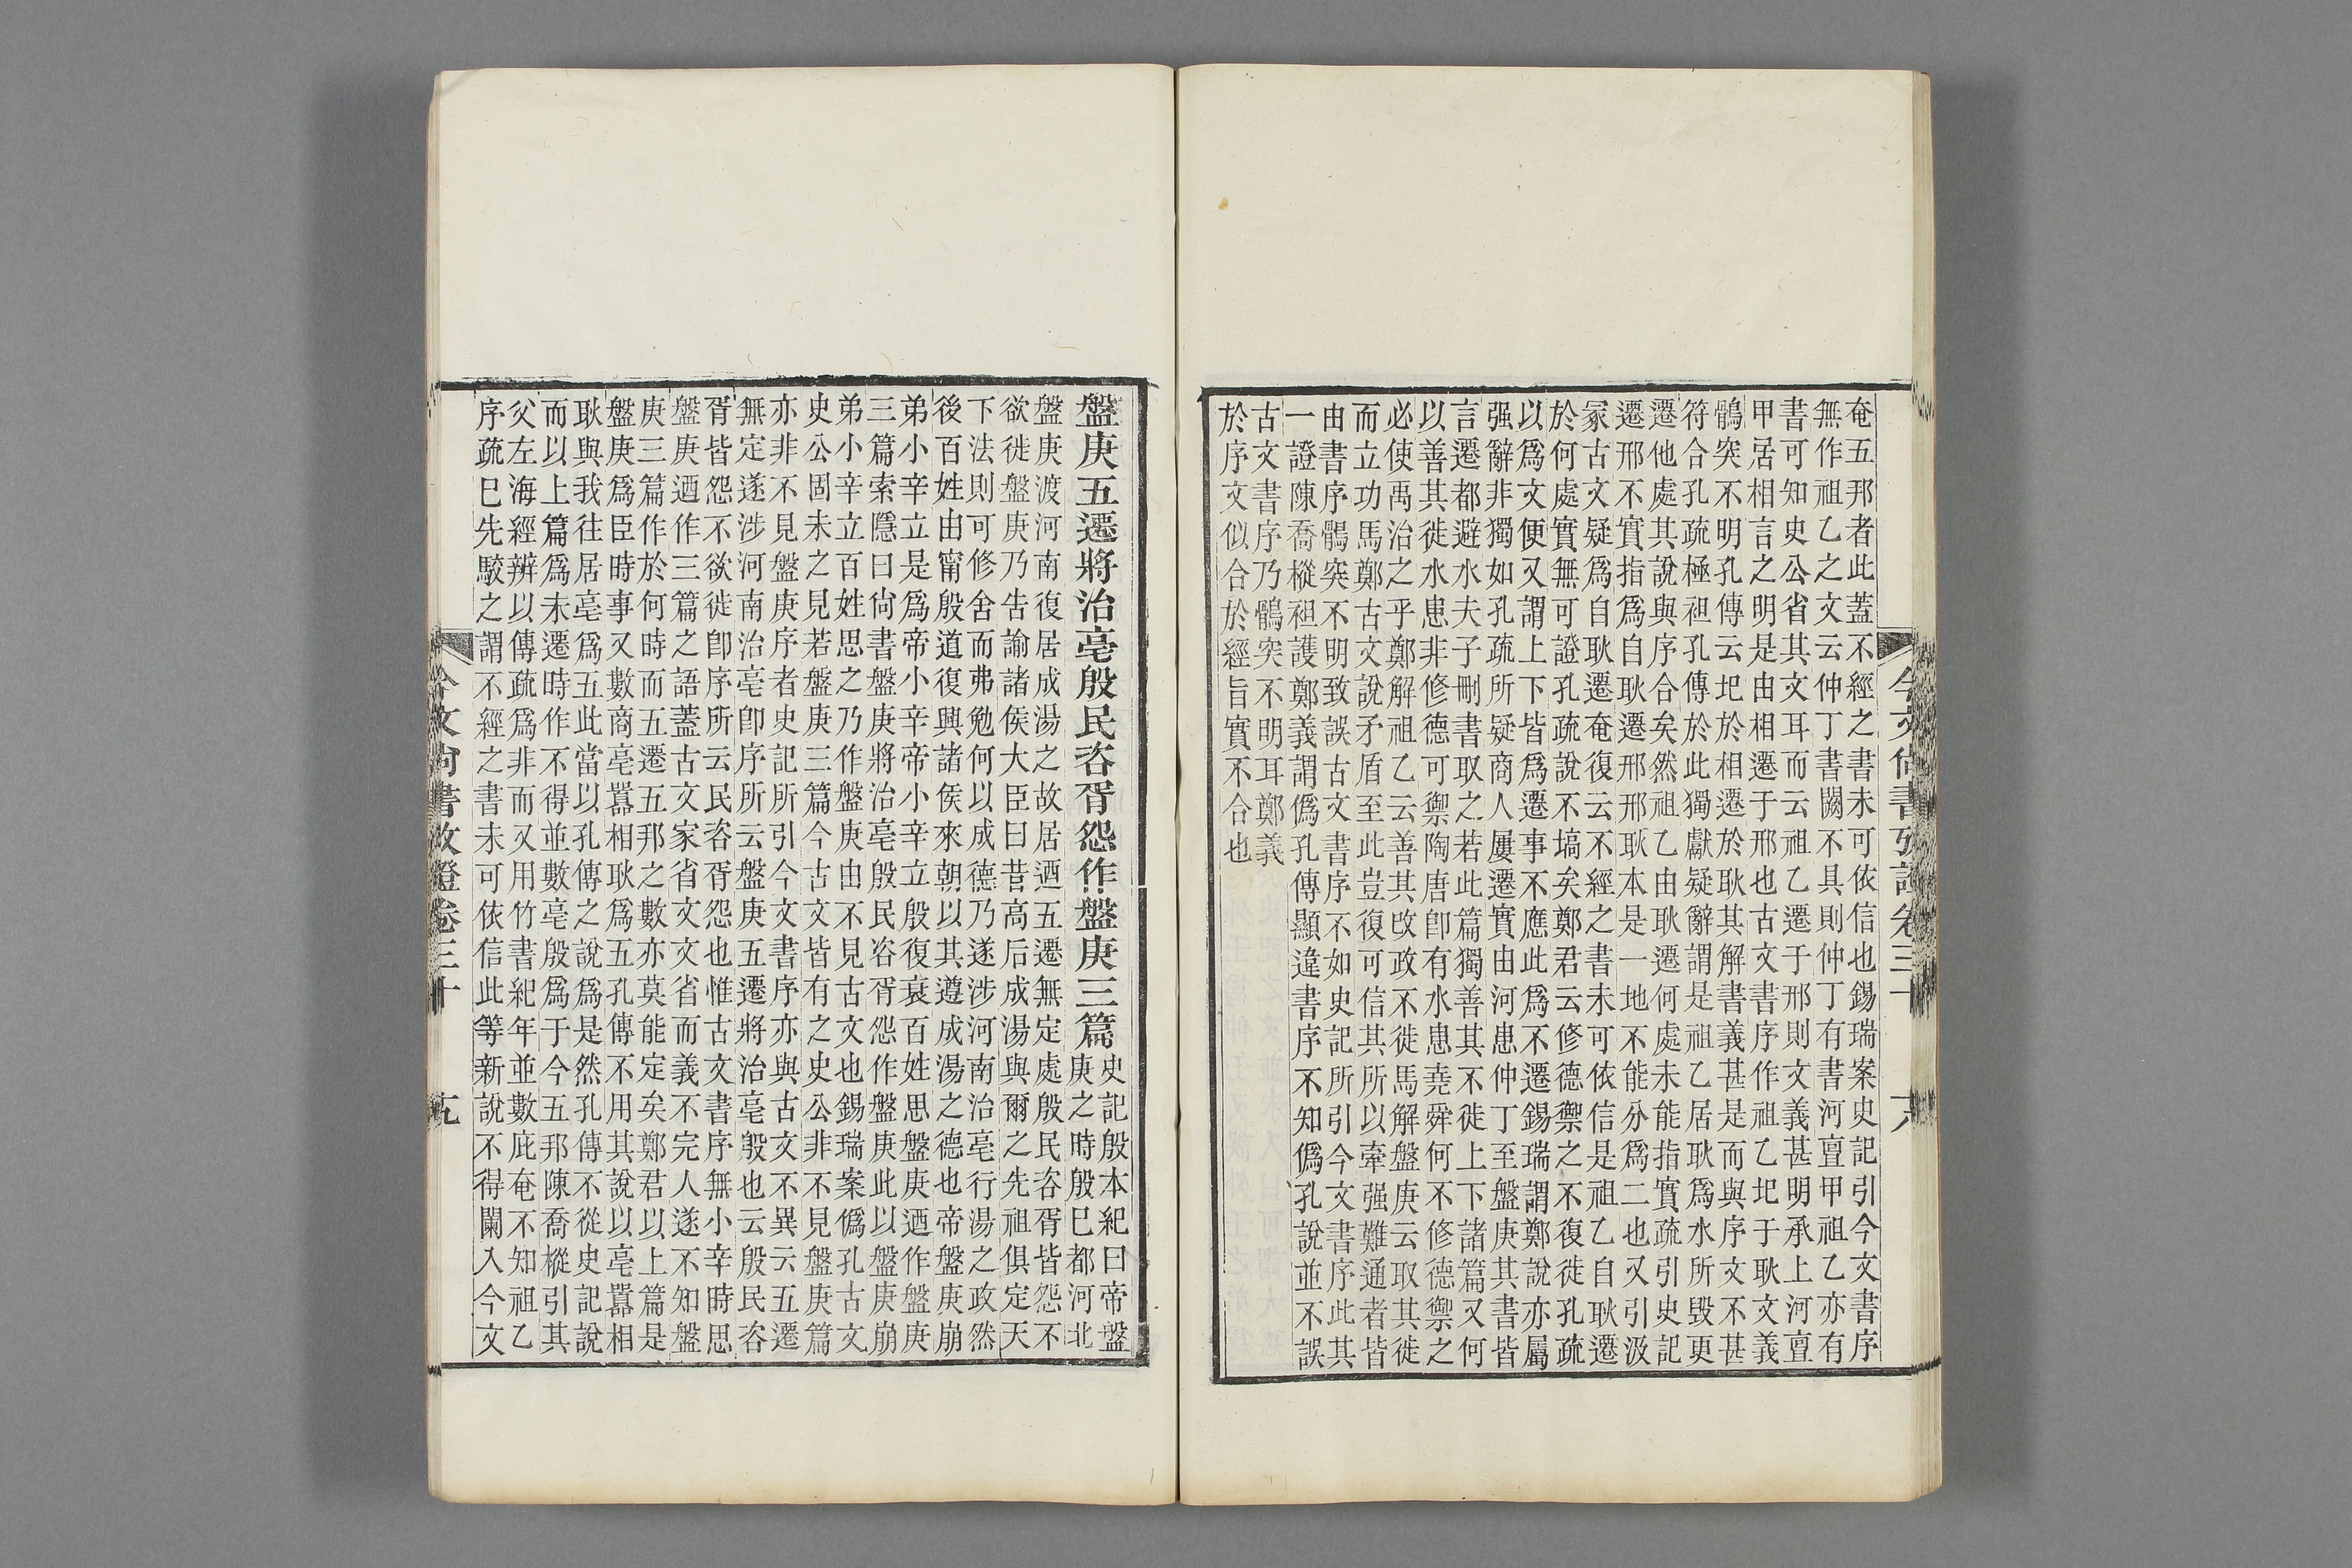 今文尚書攷證卷三十
十八
奄五邦者此蓋不經之書未可依信也錫瑞案史記引今文書序
無作祖乙之文云仲丁書闕不具則仲丁有書河亶甲祖乙亦有
書可知史公省其文耳而云祖乙遷于邢則文義甚明承上河亶
甲居相言之明是由相遷于邢也古文書序作祖乙圯于耿文義
鶻突不明孔傳云圯於相遷於耿其解書義甚是而與序文不甚
符合孔疏極祖孔傳於此獨獻疑辭謂是祖乙居耿爲水所毀更
遷他處其說與序合矣然祖乙由耿遷何處未能指實疏引史記
遷邢不實指爲自耿遷邢邢耿本是一地不能分爲二也又引汲
冢古文疑爲自耿遷奄復云不經之書未可依信是祖乙自耿遷
於何處實無可證孔疏說不塙矣鄭君云修德禦之不復徙孔疏
以爲文便又謂上下皆爲遷事不應此爲不遷錫瑞謂鄭說亦屬
强辭非獨如孔疏所疑商人屢遷實由河患仲丁至盤庚其書皆
言遷都避水夫子刪書取之若此篇獨善其不徙上下諸篇又何
以善其徙水患非修德可禦陶唐卽有水患堯舜何不修德禦之
必使禹治之乎鄭解祖乙云善其改政不徙馬解盤庚云取其徙
而立功馬鄭古文說矛盾至此豈復可信其所以牽强難通者皆
由書序鶻突不明致誤古文書序不如史記所引今文書序此其
一證陳喬樅袒護鄭義謂僞孔傳顯違書序不知僞孔說並不誤
古文書序乃鶻突不明耳鄭義
於序文似合於經旨實不合也
盤庚五遷將治亳殷民咨胥怨作盤庚三篇
史記殷本紀曰帝盤
庚之時殷已都河北
盤庚渡河南復居成湯之故居迺五遷無定處殷民咨胥皆怨不
欲徙盤庚乃告諭諸侯大臣曰昔高后成湯與爾之先祖俱定天
下法則可修舍而弗勉何以成德乃遂涉河南治亳行湯之政然
後百姓由甯殷道復興諸侯來朝以其遵成湯之德也帝盤庚崩
弟小辛立是爲帝小辛帝小辛立殷復衰百姓思盤庚迺作盤庚
三篇索隱曰尙書盤庚將治亳殷民咨胥怨作盤庚此以盤庚崩
弟小辛立百姓思之乃作盤庚由不見古文也錫瑞案僞孔古文
史公固未之見若盤庚三篇今古文皆有之史公非不見盤庚篇
亦非不見盤庚序者史記所引今文書序亦與古文不異云五遷
無定遂涉河南治亳卽序所云盤庚五遷將治亳殷也云殷民咨
胥皆怨不欲徙卽序所云民咨胥怨也惟古文書序無小辛時思
盤庚迺作三篇之語蓋古文家省文文省而義不完人遂不知盤
庚三篇作於何時而五遷五邦之數亦莫能定矣鄭君以上篇是
盤庚爲臣時事又數商亳囂相耿爲五孔傳不用其說以亳囂相
耿與我往居亳爲五此當以孔傳之說爲是然孔傳不從史記說
而以上篇爲未遷時作不得並數亳殷爲于今五邦陳喬樅引其
父左海經辨以傳疏爲非而又用竹書紀年並數庇奄不知祖乙
序疏已先駮之謂不經之書未可依信此等新說不得闌入今文
今文尙書攷證卷三十
十九